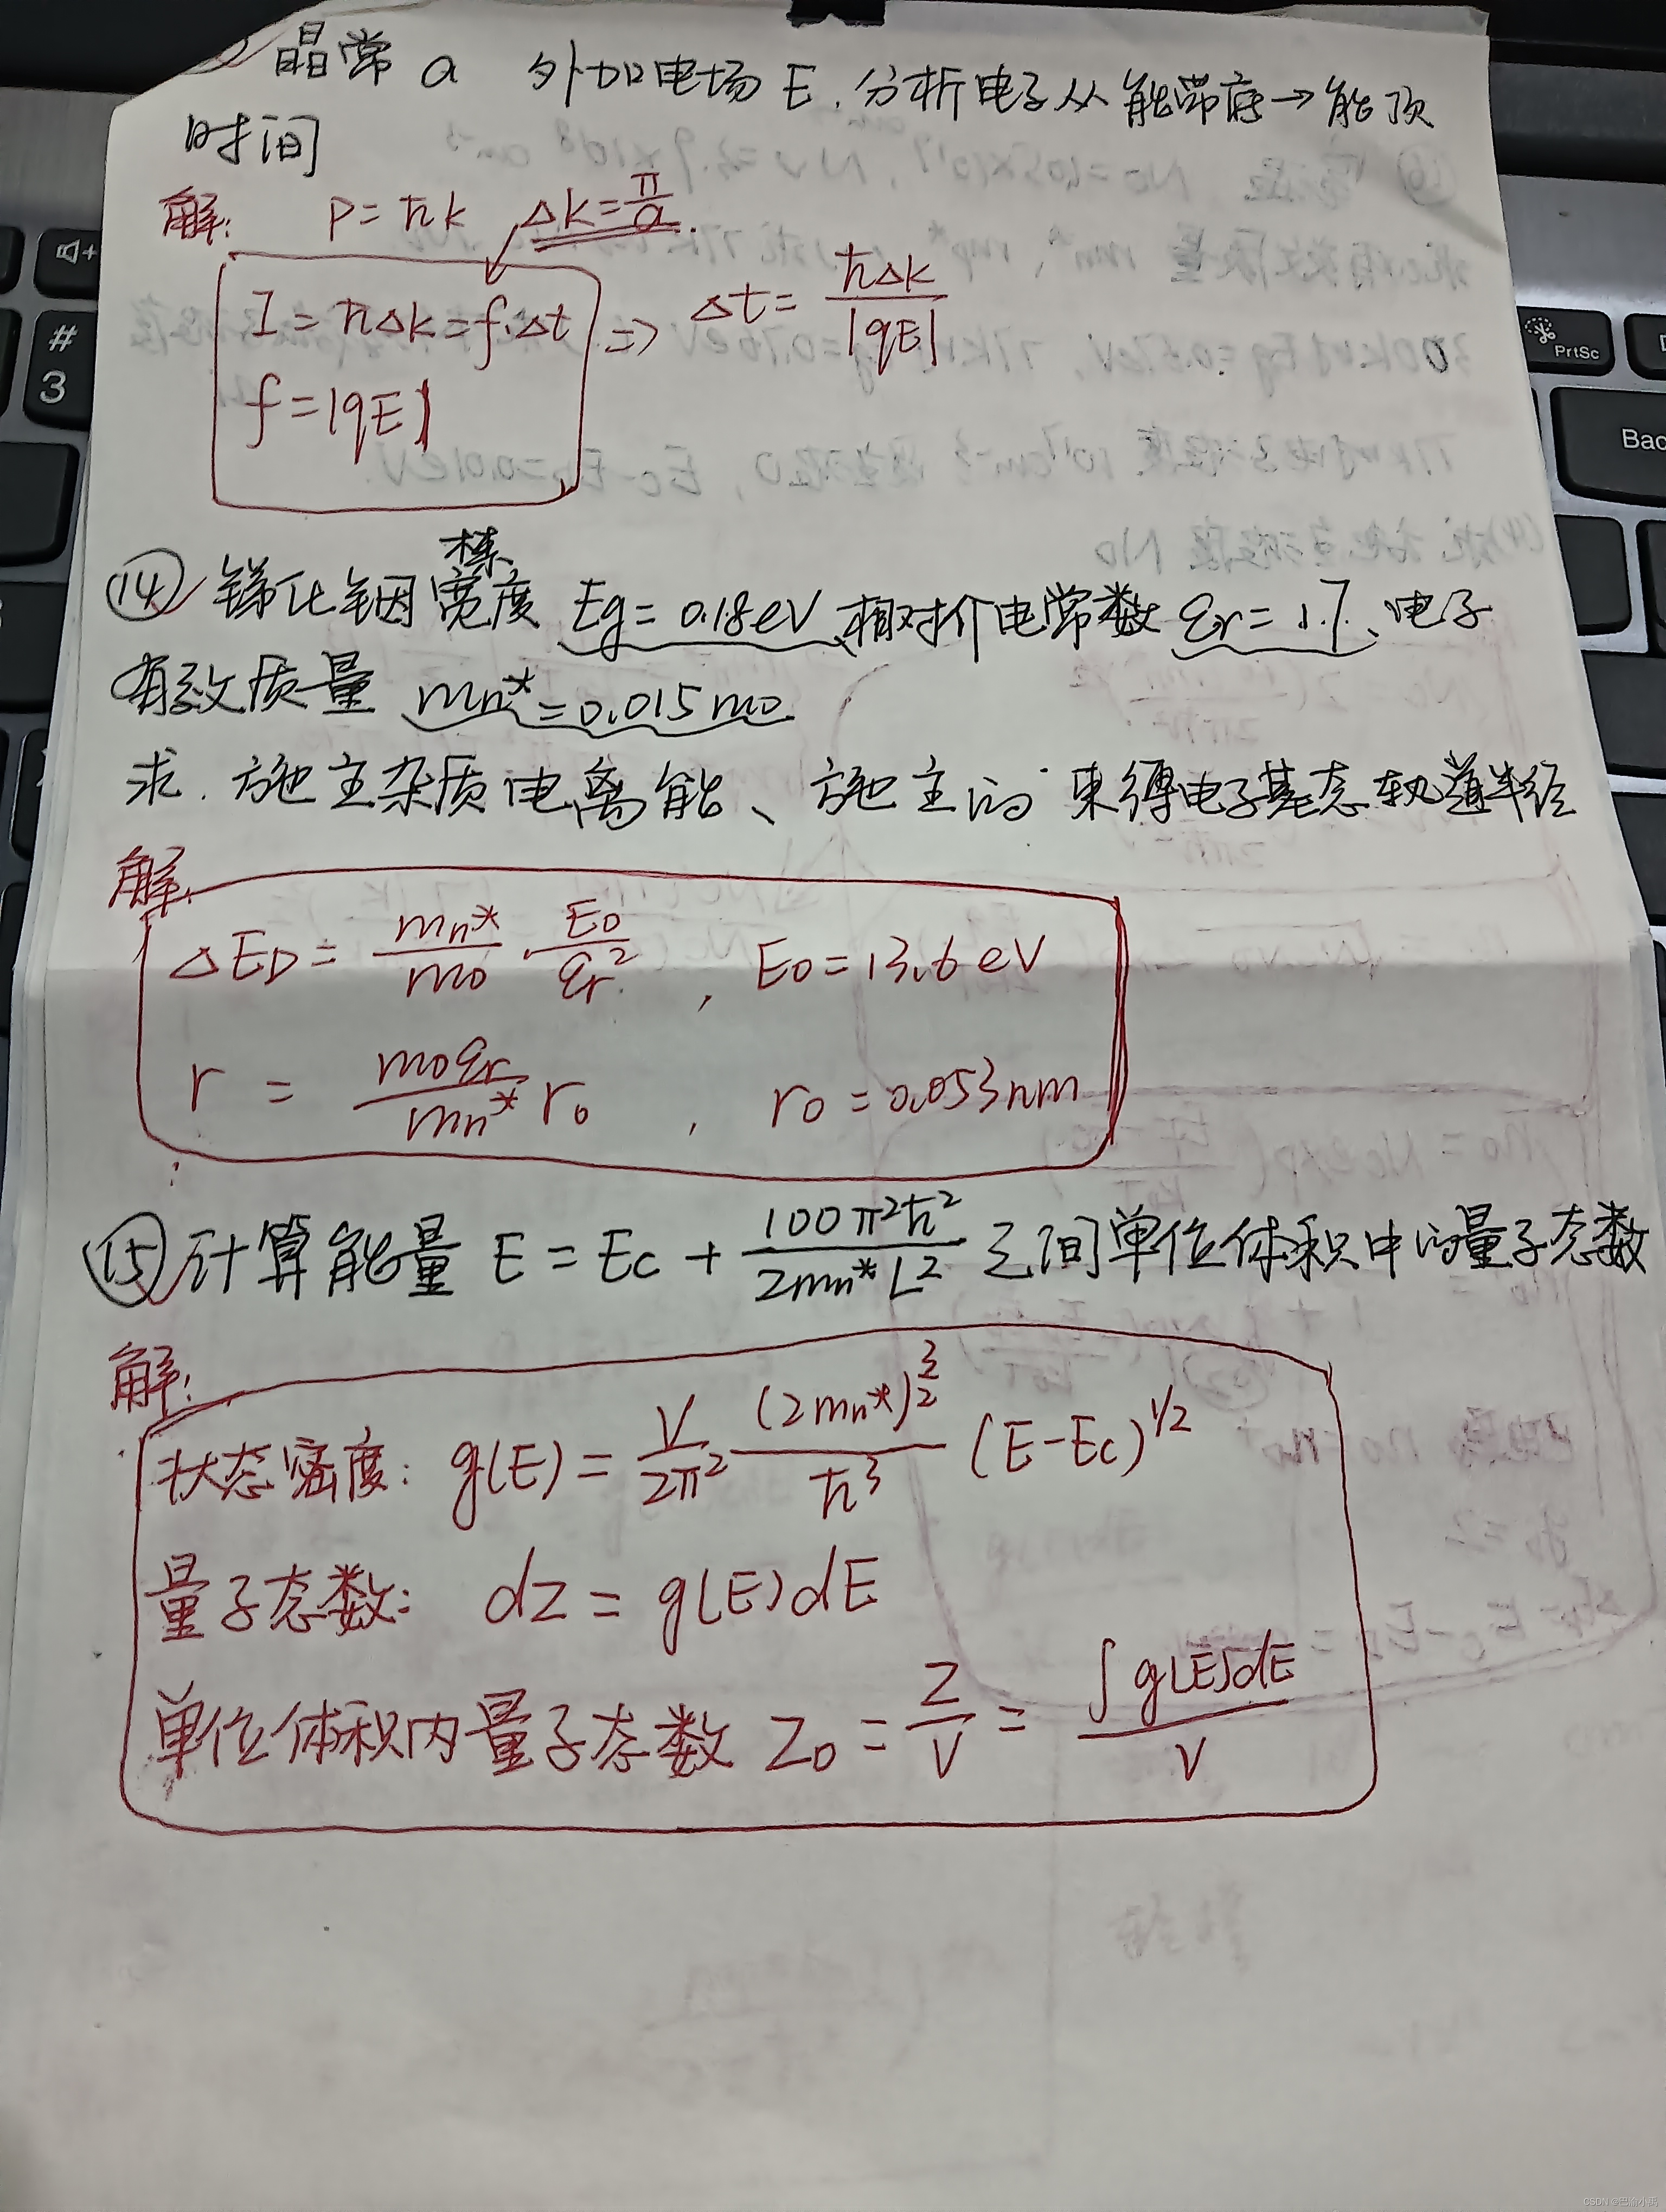 晶常 a 外加电场 E. 分析电子从能带底→能顶
时间
解: P=ħk Δk=π/a
I=ħΔk=f·Δt => Δt=ħΔk/|qE|
f=|qE|
⑭ 锑化铟禁宽度 Eg=0.18eV, 相对介电常数 εr=17, 电子
有效质量 mn*=0.015m0
求. 施主杂质电离能、施主的束缚电子基态轨道半径
解:
ΔED=mn*/m0·E0/εr², E0=13.6eV
r=m0εr/mn* r0, r0=0.053nm
⑮ 计算能量 E=Ec+100π²ħ²/2mn*L² 之间单位体积中的量子态数
解:
状态密度: g(E)=V/2π² (2mn*)^3/2/ħ³ (E-Ec)^1/2
量子态数: dz=g(E)dE
单位体积内量子态数 Z0=Z/V=∫g(E)dE/V
# 3
PrtSc
Bac
CSDN @巴渝小禹